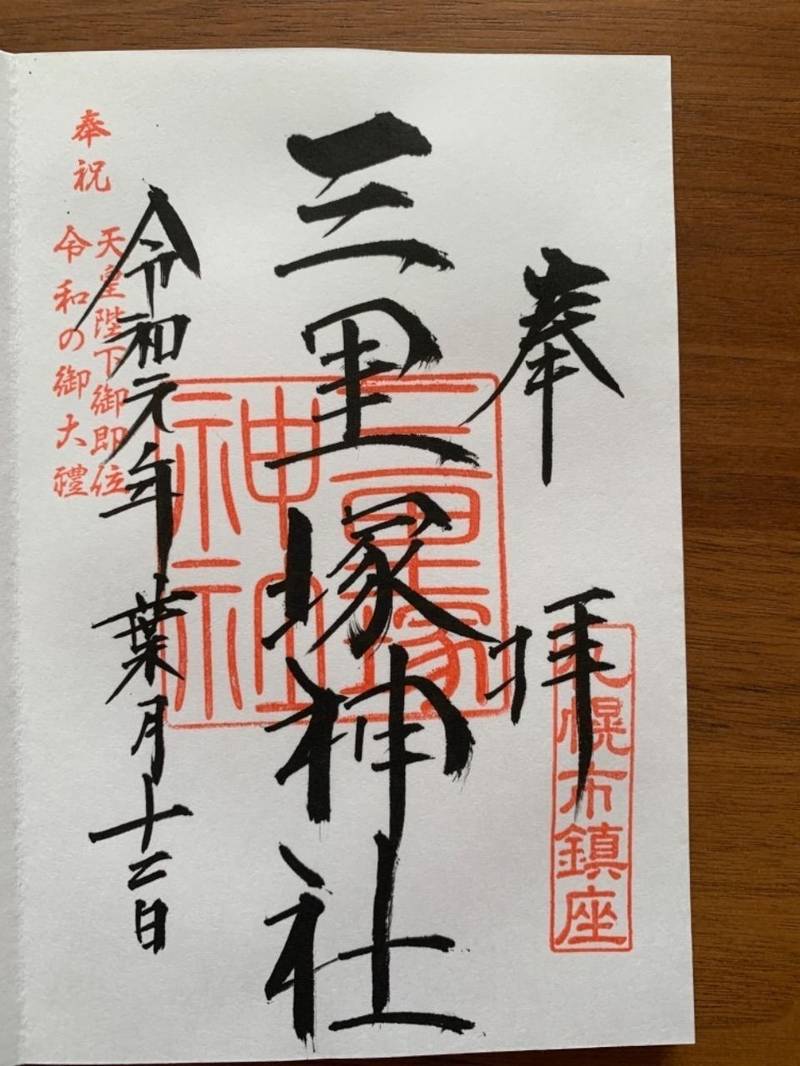 奉拝
札幌市鎮座
三里塚神社
三里塚
神社
令和元年葉月十二日
奉祝
天皇陛下御即位
令和の御大禮